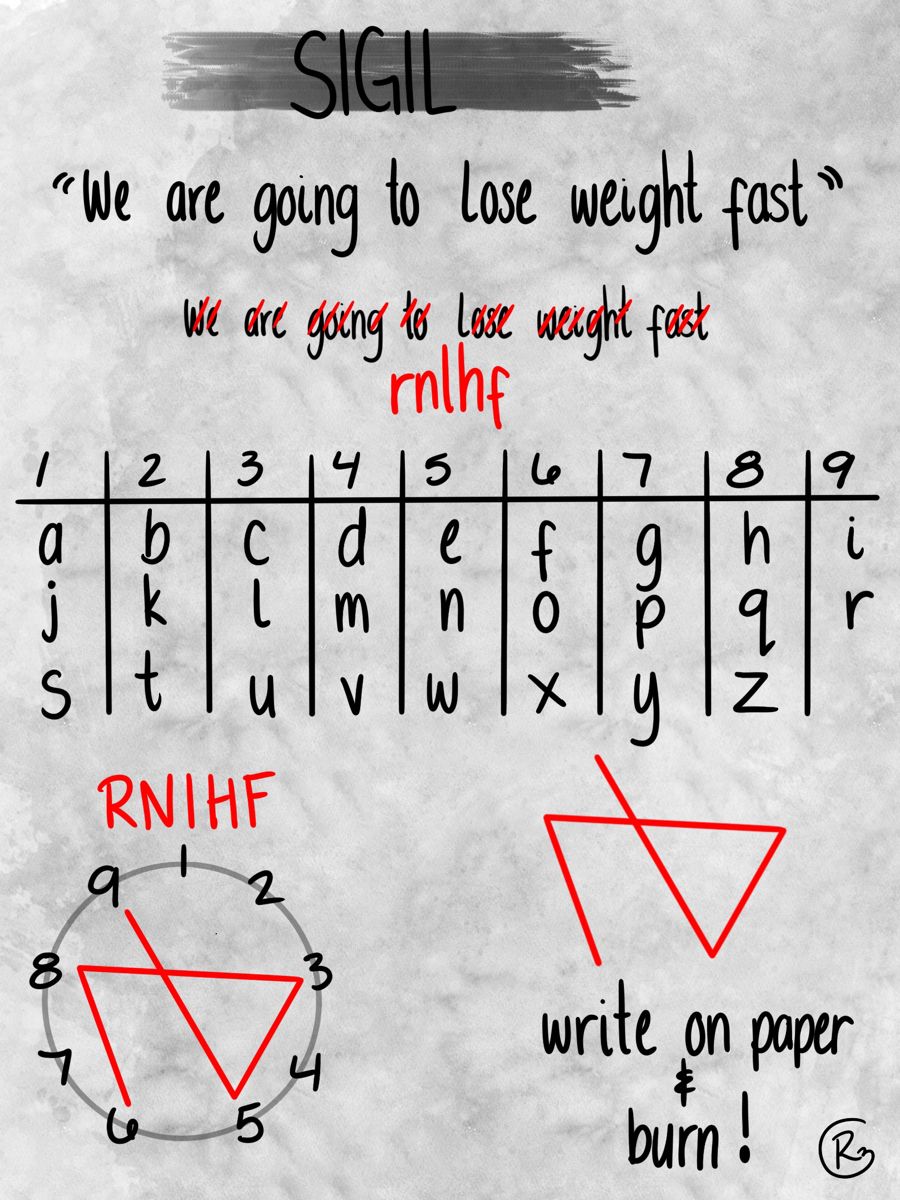 SIGIL
"We are going to lose weight fast"
We are going to lose weight fast
rnlhf
1 2 3 4 5 6 7 8 9
a b c d e f g h i
j k l m n o p q r
s t u v w x y z
RNIHF
1
9 2
8 3
7 4
6 5
write on paper
&
burn!
R3